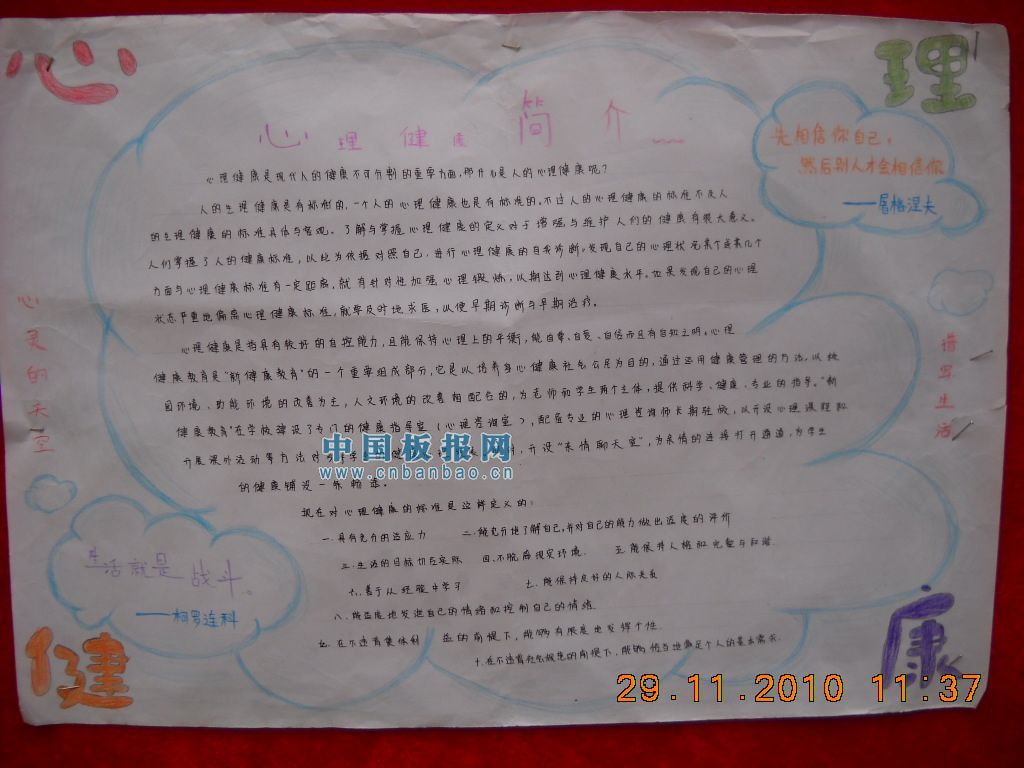 心
理
心理健康简介
先相信你自己,
然后别人才会相信你
——屠格涅夫
心理健康是现代人的健康不可分割的重要方面,那什么是人的心理健康呢?
人的生理健康是有标准的,一个人的心理健康也是有标准的。不过人的心理健康的标准不及人
的生理健康的标准具体与客观。了解与掌握心理健康的定义对于增强与维护人们的健康有很大意义。
人们掌握了人的健康标准,以此为依据对照自己,进行心理健康的自我诊断。发现自己的心理状况某个或某几个
方面与心理健康标准有一定距离,就有针对性加强心理锻炼,以期达到心理健康水平。如果发现自己的心理
状态严重地偏离心理健康标准,就要及时地求医,以便早期诊断与早期治疗。
心理健康是指具有较好的自控能力,且能保持心理上的平衡,能自尊、自爱、自信而且有自知之明。心理
健康教育是"新健康教育"的一个重要组成部分,它是以培养身心健康社会公民为目的,通过运用健康管理的方法,以校
园环境、功能环境的改善为主,人文环境的改善相配合的,为老师和学生两个主体,提供科学、健康、专业的指导。"新
健康教育"在学校建设了专门的健康指导室(心理咨询室),配届专业的心理咨询师长期驻校,以开设心理课程和
开展课外活动等方法对 学 健 开设"亲情聊天室",为亲情的连接打开通道,为学生
的健康铺设一条
现在对心理健康的标准是这样定义的:
一.具有充分的适应力 二.能充分地了解自己,并对自己的能力做出适度的评价
三.生活的目标切合实际 四.不脱离现实环境. 五.能保持人格的完整与和谐.
六.善于从经验中学习 七.能保持良好的人际关系
八.能适度地发泄自己的情绪和控制自己的情绪.
九.在不违背集体利益的前提下,能够有限度地发挥个性.
十.在不违背社会规范的前提下,能够恰当地满足个人的基本需求.
心灵的天空
谱写生活
中国板报网
www.cnbanbao.cn
生活就是战斗。
——柯罗连科
健
康
29.11.2010 11:37